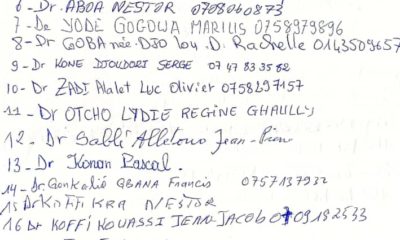 6 - Dr. ABOA NESTOR 0708060873
7 - Dr YODE GOGOWA MARIUS 0758979896
8 - Dr GOBA née DJO lou .D. Rachelle 0143509657
9 - Dr KONE DJOUDORI SERGE 07 47 83 35 82
10 - Dr ZADI Alalet Luc Olivier 0758297157
11 - Dr OTCHO LYDIE REGINE GHAULLY
12 - Dr Jean-Pierre
13 - Dr Konan Pascal.
14 - Dr. Gonkalié GBANA Francis 0757137932
15 Dr KOFFI KRA NESTOR
16 Dr KOFFI KOUASSI JEAN-JACOB 0709192533